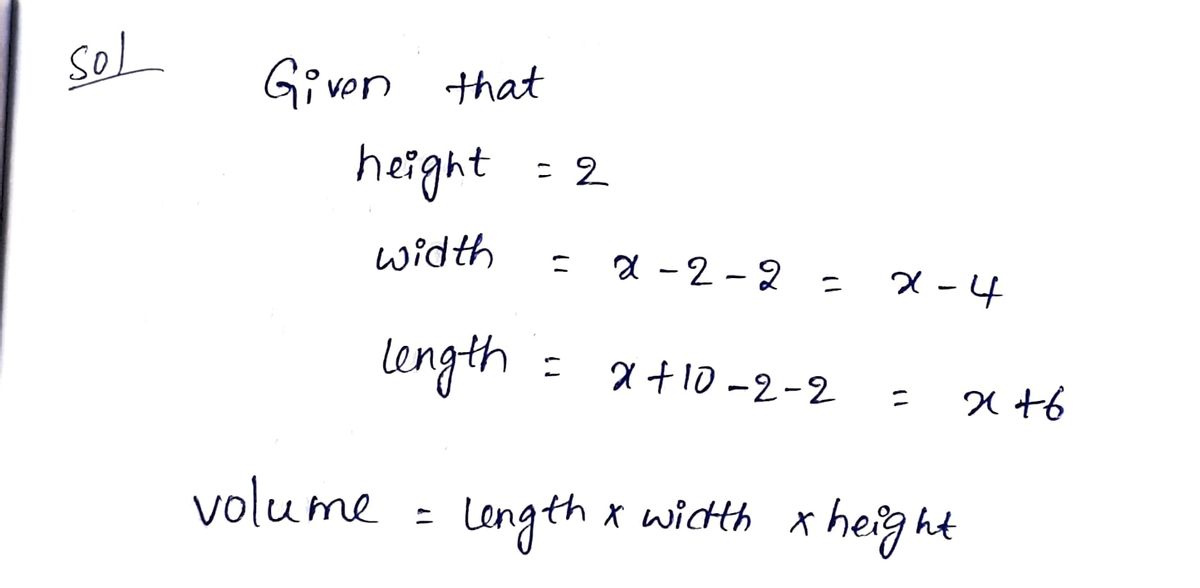 Sol
Given that
height = 2
width = x - 2 - 2 = x - 4
length = x + 10 - 2 - 2 = x + 6
volume = length x width x height